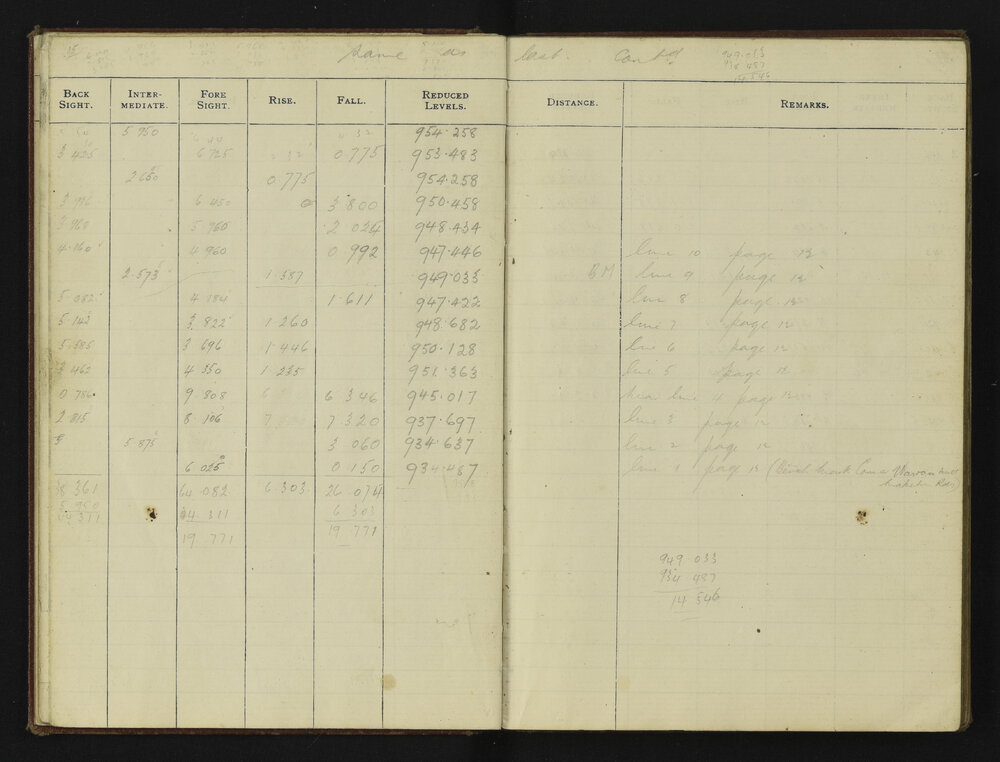 same as last. Contd.
949.033
14 546
BACK SIGHT. INTER-MEDIATE. FORE SIGHT. RISE. FALL. REDUCED LEVELS. DISTANCE. REMARKS.
5 950 954.258
3 425 6 725 0 775 953.483
2 650 0.775 954.258
6 450 3 800 950.458
5 960 2 024 948.434
4.160 4 960 0 992 947.446 line 10 page 12
2.573 1.587 949.033 BM line 9 page 12
5 082 4 184 1.611 947.422 line 8 page 12
5.142 3 822 1.260 948.682 line 7 page 12
5.585 3 696 1.446 950.128 line 6 page 12
3 462 4 350 1.235 951.363 line 5 page 12
0 786 9 808 6 346 945.017 line 4 page 12
2 815 8 106 7 320 937.697 line 3 page 12
5 875 3 060 934.637 line 2 page 12
6 025 0 150 934.487 line 1 page 12 (Bench mark
38 361 64 082 6.303 26.074
5 950 44 311 6 303
19.771 19 771
949 033
934 487
14 546